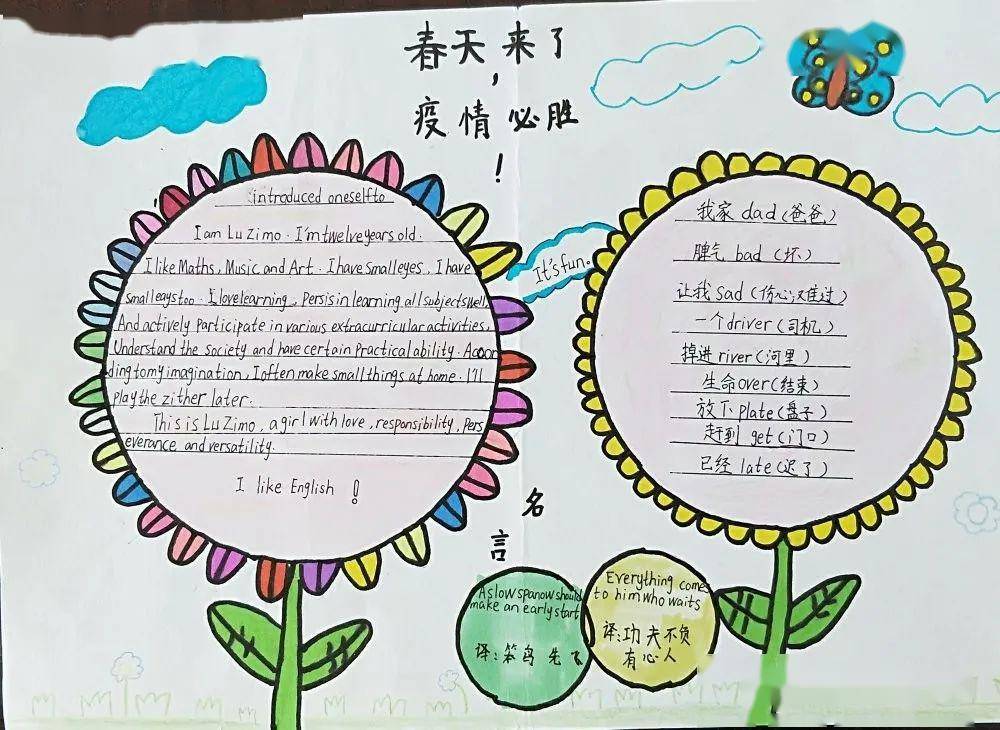 春天来了
，
疫情必胜
！
introduced oneselfto
I am Lu Zimo. I'm twelve years old.
I like Maths, Music and Art. I have small eyes. I have
small eays too. I love learning, Persis in learning all subjects well,
And actively Participate in various extracurricular activities,
Understand the society and have certain Practical ability. Accor
ding to my imagination, I often make small things at home. I'll
play the zither later.
This is Lu Zimo, a girl with love, responsibility, Pers
everance and versatility.
I like English !
It's fun.
我家 dad (爸爸)
脾气 bad (坏)
让我 Sad (伤心难过)
一个 driver (司机)
掉进 river (河里)
生命 over (结束)
放下 plate (盘子)
赶到 get (门口)
已经 late (迟了)
名
言
A slow spanow should
make an early start
译:笨鸟先飞
Everything comes
to him who waits
译:功夫不负
有心人